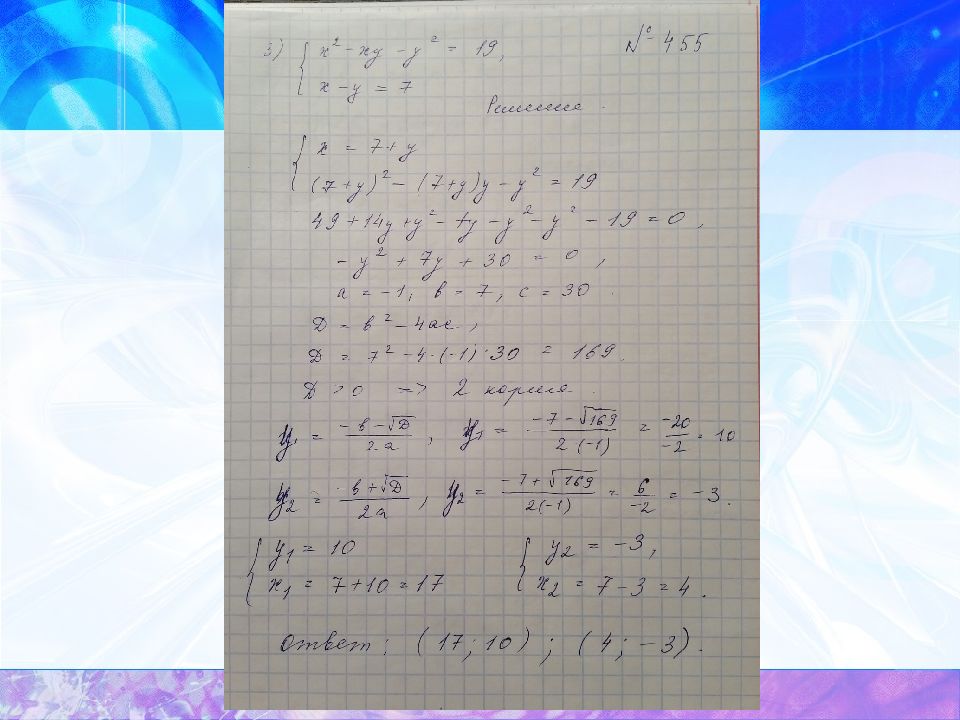 3) { x² - xy - y² = 19,
x - y = 7
№ 455
Решение.
{ x = 7 + y
(7+y)² - (7+y)y - y² = 19
49 + 14y + y² - 7y - y² - y² - 19 = 0,
- y² + 7y + 30 = 0,
a = -1, в = 7, c = 30.
Д = в² - 4ac,
Д = 7² - 4·(-1)·30 = 169.
Д > 0 => 2 корня.
y₁ = (-в - √Д)/2a, y₁ = (-7 - √169)/2·(-1) = -20/-2 = 10
y₂ = (-в + √Д)/2a, y₂ = (-7 + √169)/2(-1) = 6/-2 = -3.
{ y₁ = 10
x₁ = 7 + 10 = 17
{ y₂ = -3,
x₂ = 7 - 3 = 4.
Ответ: (17; 10); (4; -3).